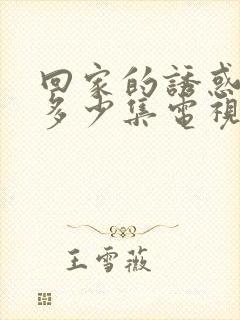 回家的誘惑
多少集電視
王雪薇